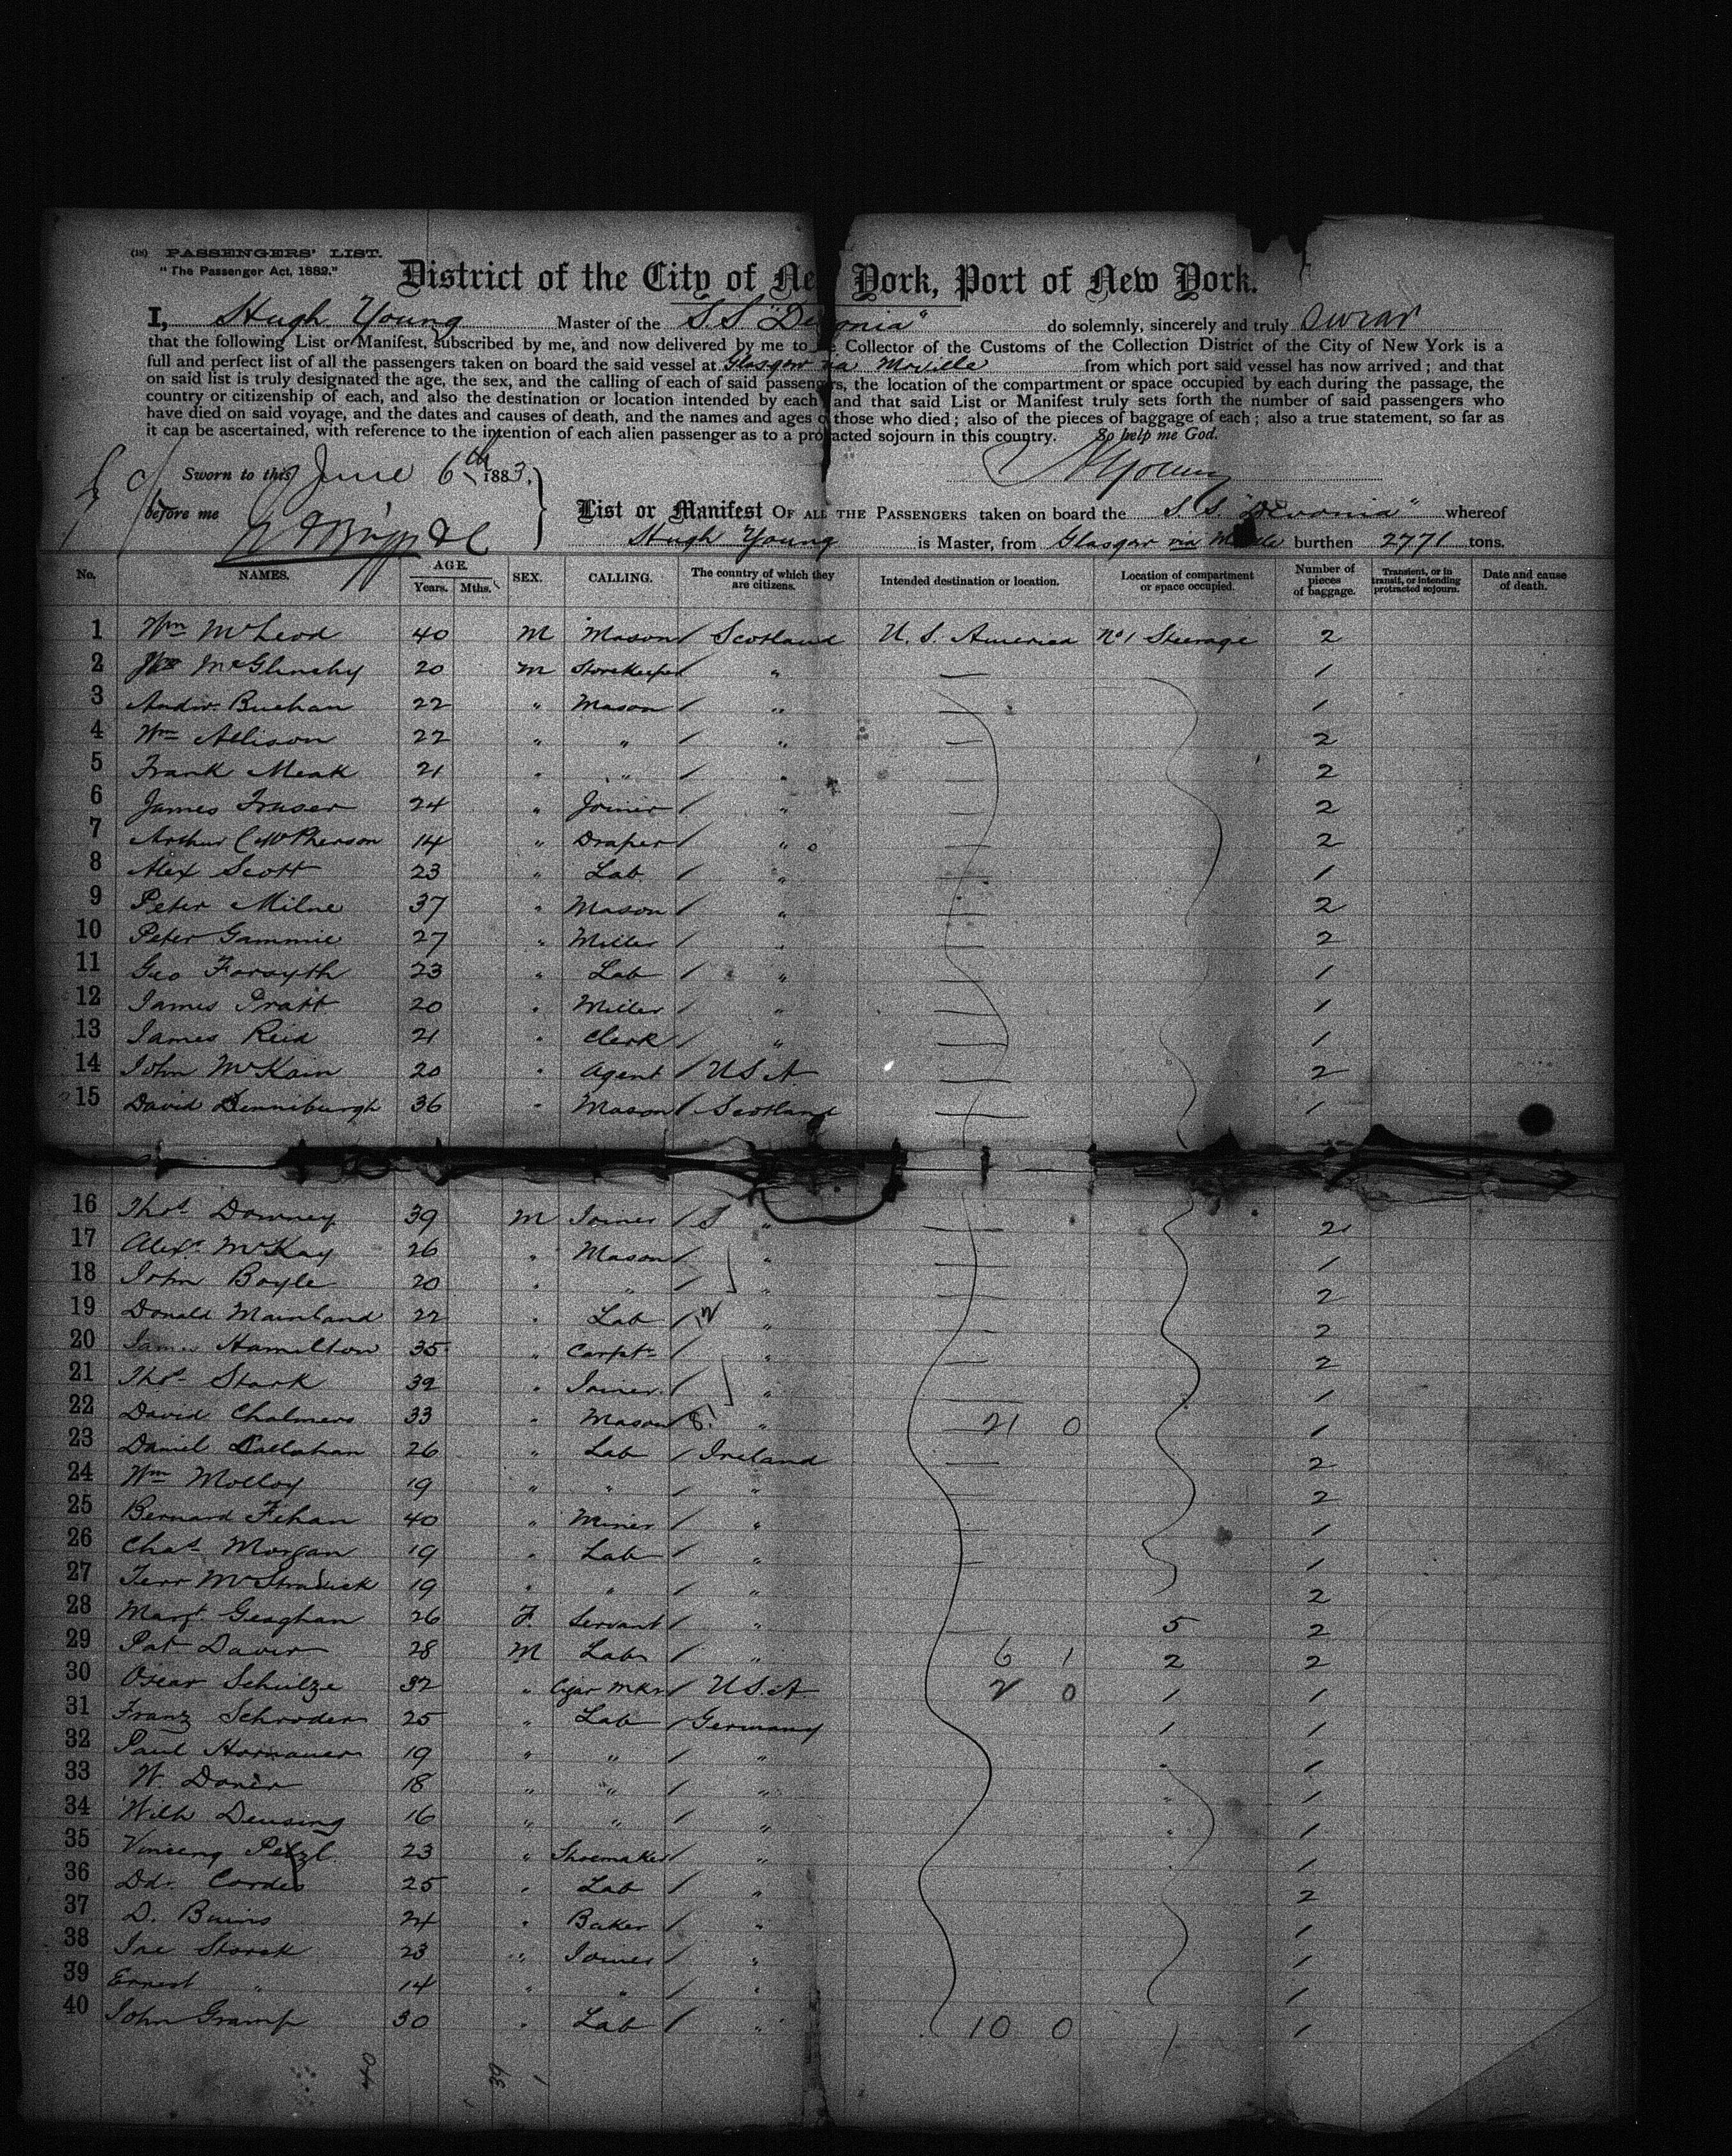 (18) PASSENGERS' LIST.
"The Passenger Act, 1882."
District of the City of New York, Port of New York.
I, Hugh Young Master of the S.S "Devonia" do solemnly, sincerely and truly swear
that the following List or Manifest, subscribed by me, and now delivered by me to the Collector of the Customs of the Collection District of the City of New York is a
full and perfect list of all the passengers taken on board the said vessel at Glasgow via Moville from which port said vessel has now arrived; and that
on said list is truly designated the age, the sex, and the calling of each of said passengers, the location of the compartment or space occupied by each during the passage, the
country or citizenship of each, and also the destination or location intended by each and that said List or Manifest truly sets forth the number of said passengers who
have died on said voyage, and the dates and causes of death, and the names and ages of those who died; also of the pieces of baggage of each; also a true statement, so far as
it can be ascertained, with reference to the intention of each alien passenger as to a protracted sojourn in this country. So help me God.
Sworn to this June 6th 1883. HYoung
before me
List or Manifest OF ALL THE PASSENGERS taken on board the S.S. "Devonia" whereof
Hugh Young is Master, from Glasgow via Moville burthen 2771 tons.
No. NAMES. AGE. Years. Mths. SEX. CALLING. The country of which they are citizens. Intended destination or location. Location of compartment or space occupied. Number of pieces of baggage. Transient, or in transit, or intending protracted sojourn. Date and cause of death.
1 Wm McLeod 40 M Mason / Scotland U.S. America No 1 Steerage 2
2 McGlinchy 20 M Storekeeper / " — 1
3 Andw. Buchan 22 " Mason / " — 1
4 Wm Allison 22 " " / " — 2
5 Frank Meak 21 " " / " — 2
6 James Fraser 24 " Joiner / " — 2
7 Arthur C McPherson 14 " Draper / " — 2
8 Alex Scott 23 " Lab / " — 1
9 Peter Milne 37 " Mason / " — 2
10 Peter Gammie 27 " Miller / " — 2
11 Geo Forsyth 23 " Lab / " — 1
12 James Pratt 20 " Miller / " — 1
13 James Reid 21 " Clerk / " — 1
14 John McKain 20 " Agent / U.S.A. — 2
15 David Denniburgh 36 " Mason / Scotland — 1
16 Thos. Downey 39 M Joiner / S " — 2
17 Alexr. McKay 26 " Mason / " — 1
18 John Boyle 20 " " / " — 2
19 Donald Mainland 22 " Lab / " — 2
20 James Hamilton 35 " Carptr / " — 2
21 Thos. Stark 32 " Joiner / " — 1
22 David Chalmers 33 " Mason / " 21 0 1
23 Daniel Callahan 26 " Lab / Ireland — 2
24 Wm Molloy 19 " " / " — 2
25 Bernard Fehan 40 " Miner / " — 1
26 Chas. Morgan 19 " Lab / " — 1
27 Terr 19 " " / " — 2
28 Margt. Geaghan 26 F. Servant / " — 5 2
29 Pat Daver 28 M Lab / " 6 1 2 2
30 Oscar Schülze 32 " Cigar Mkr / U.S.A. 2 0 1 1
31 Franz Schroder 25 " Lab / Germany 1 1
32 Paul Hornauer 19 " " / " " 1
33 W. Doner 18 " " / " " 1
34 Wilh Deusing 16 " " / " " 1
35 Vincenz Petzl 23 " Shoemaker / " " 1
36 Ddr. Cordes 25 " Lab / " 2
37 D. Buins 24 " Baker / " 1
38 Storck 23 " Joiner / " 1
39 Ernest " 14 " " / " 1
40 John Gramp 30 " Lab / " 10 0 1
40 39 1